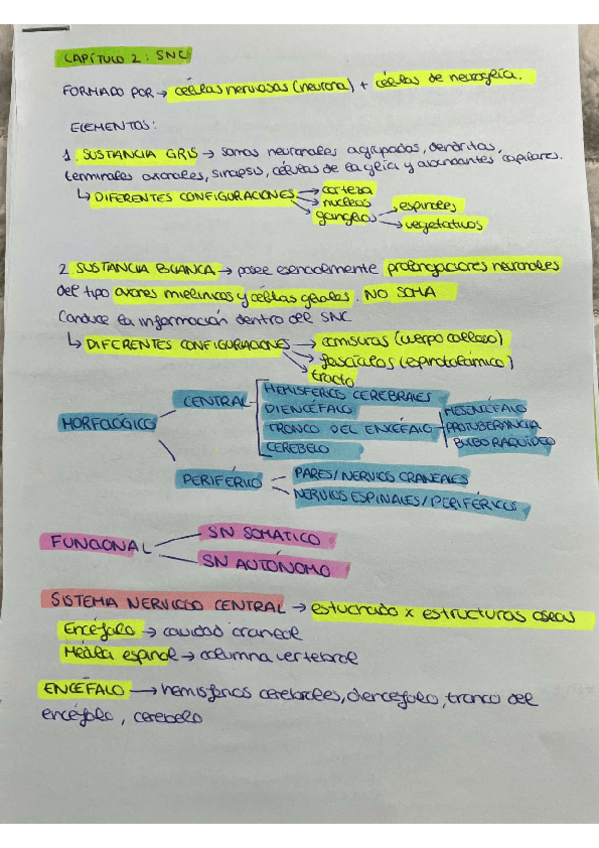 CAPÍTULO 2: SNC
FORMADO POR → células nerviosas (neurona) + células de neuroglía.
ELEMENTOS:
1. SUSTANCIA GRIS → somas neuronales agrupadas, dendritas,
terminales axonales, sinapsis, células de la glía y abundantes capilares.
↳ DIFERENTES CONFIGURACIONES → corteza
→ núcleos
→ ganglios → espinales
→ vegetativos
2. SUSTANCIA BLANCA → posee esencialmente prolongaciones neuronales
del tipo axones mielínicos y células gliales. NO SOMA
Conduce la información dentro del SNC
↳ DIFERENTES CONFIGURACIONES → comisuras (cuerpo calloso)
→ fascículos (espinotalámico)
→ tracto
MORFOLÓGICO
CENTRAL
HEMISFERIOS CEREBRALES
DIENCÉFALO
TRONCO DEL ENCÉFALO
MESENCÉFALO
PROTUBERANCIA
BULBO RAQUÍDEO
CEREBELO
PERIFÉRICO
PARES/NERVIOS CRANEALES
NERVIOS ESPINALES/PERIFÉRICOS
FUNCIONAL
SN SOMÁTICO
SN AUTÓNOMO
SISTEMA NERVIOSO CENTRAL → estuchado x estructuras óseas
Encéfalo → cavidad craneal
Médula espinal → columna vertebral
ENCÉFALO → hemisferios cerebrales, diencéfalo, tronco del
encéfalo, cerebelo